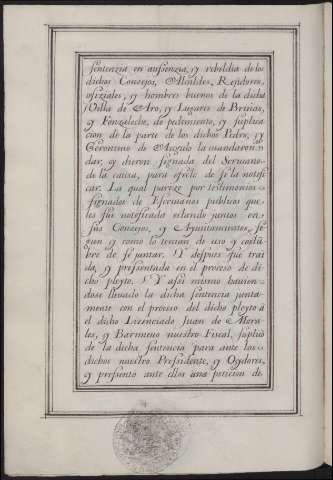 sentenzia en ausenzia, y rebeldia de los
dichos Consejos, Alcaldes, Rexidores,
ofiziales, y hombres buenos de la dicha
Villa de Aro, y Lugares de Briñas,
y Fenzaleche, de pedimiento, y suplica
cion de la parte de los dichos Pedro, y
Geronimo de Angulo la mandaron
dar, y dieron signada del Scrivano
de la causa, para efecto de se la notifi
car. La qual pareze por testimonios
signados de Escrivanos publicos que
les fue notificada estando juntos en
sus Consejos, y Ayuntamientos, se
gun y como lo tenian de uso y costũ
bre de se juntar. Y despues fue trai
da, y presentada en el proceso de di
cho pleyto. Y Assi mismo havien
dose llevado la dicha sentencia junta
mente con el proceso del dicho pleyto á
el dicho Lizenciado Juan de Mora
les, y Barnuevo nuestro Fiscal, suplicó
de la dicha sentencia para ante los
dichos nuestro Presidente, y Oydores,
y presento ante ellos una peticion de